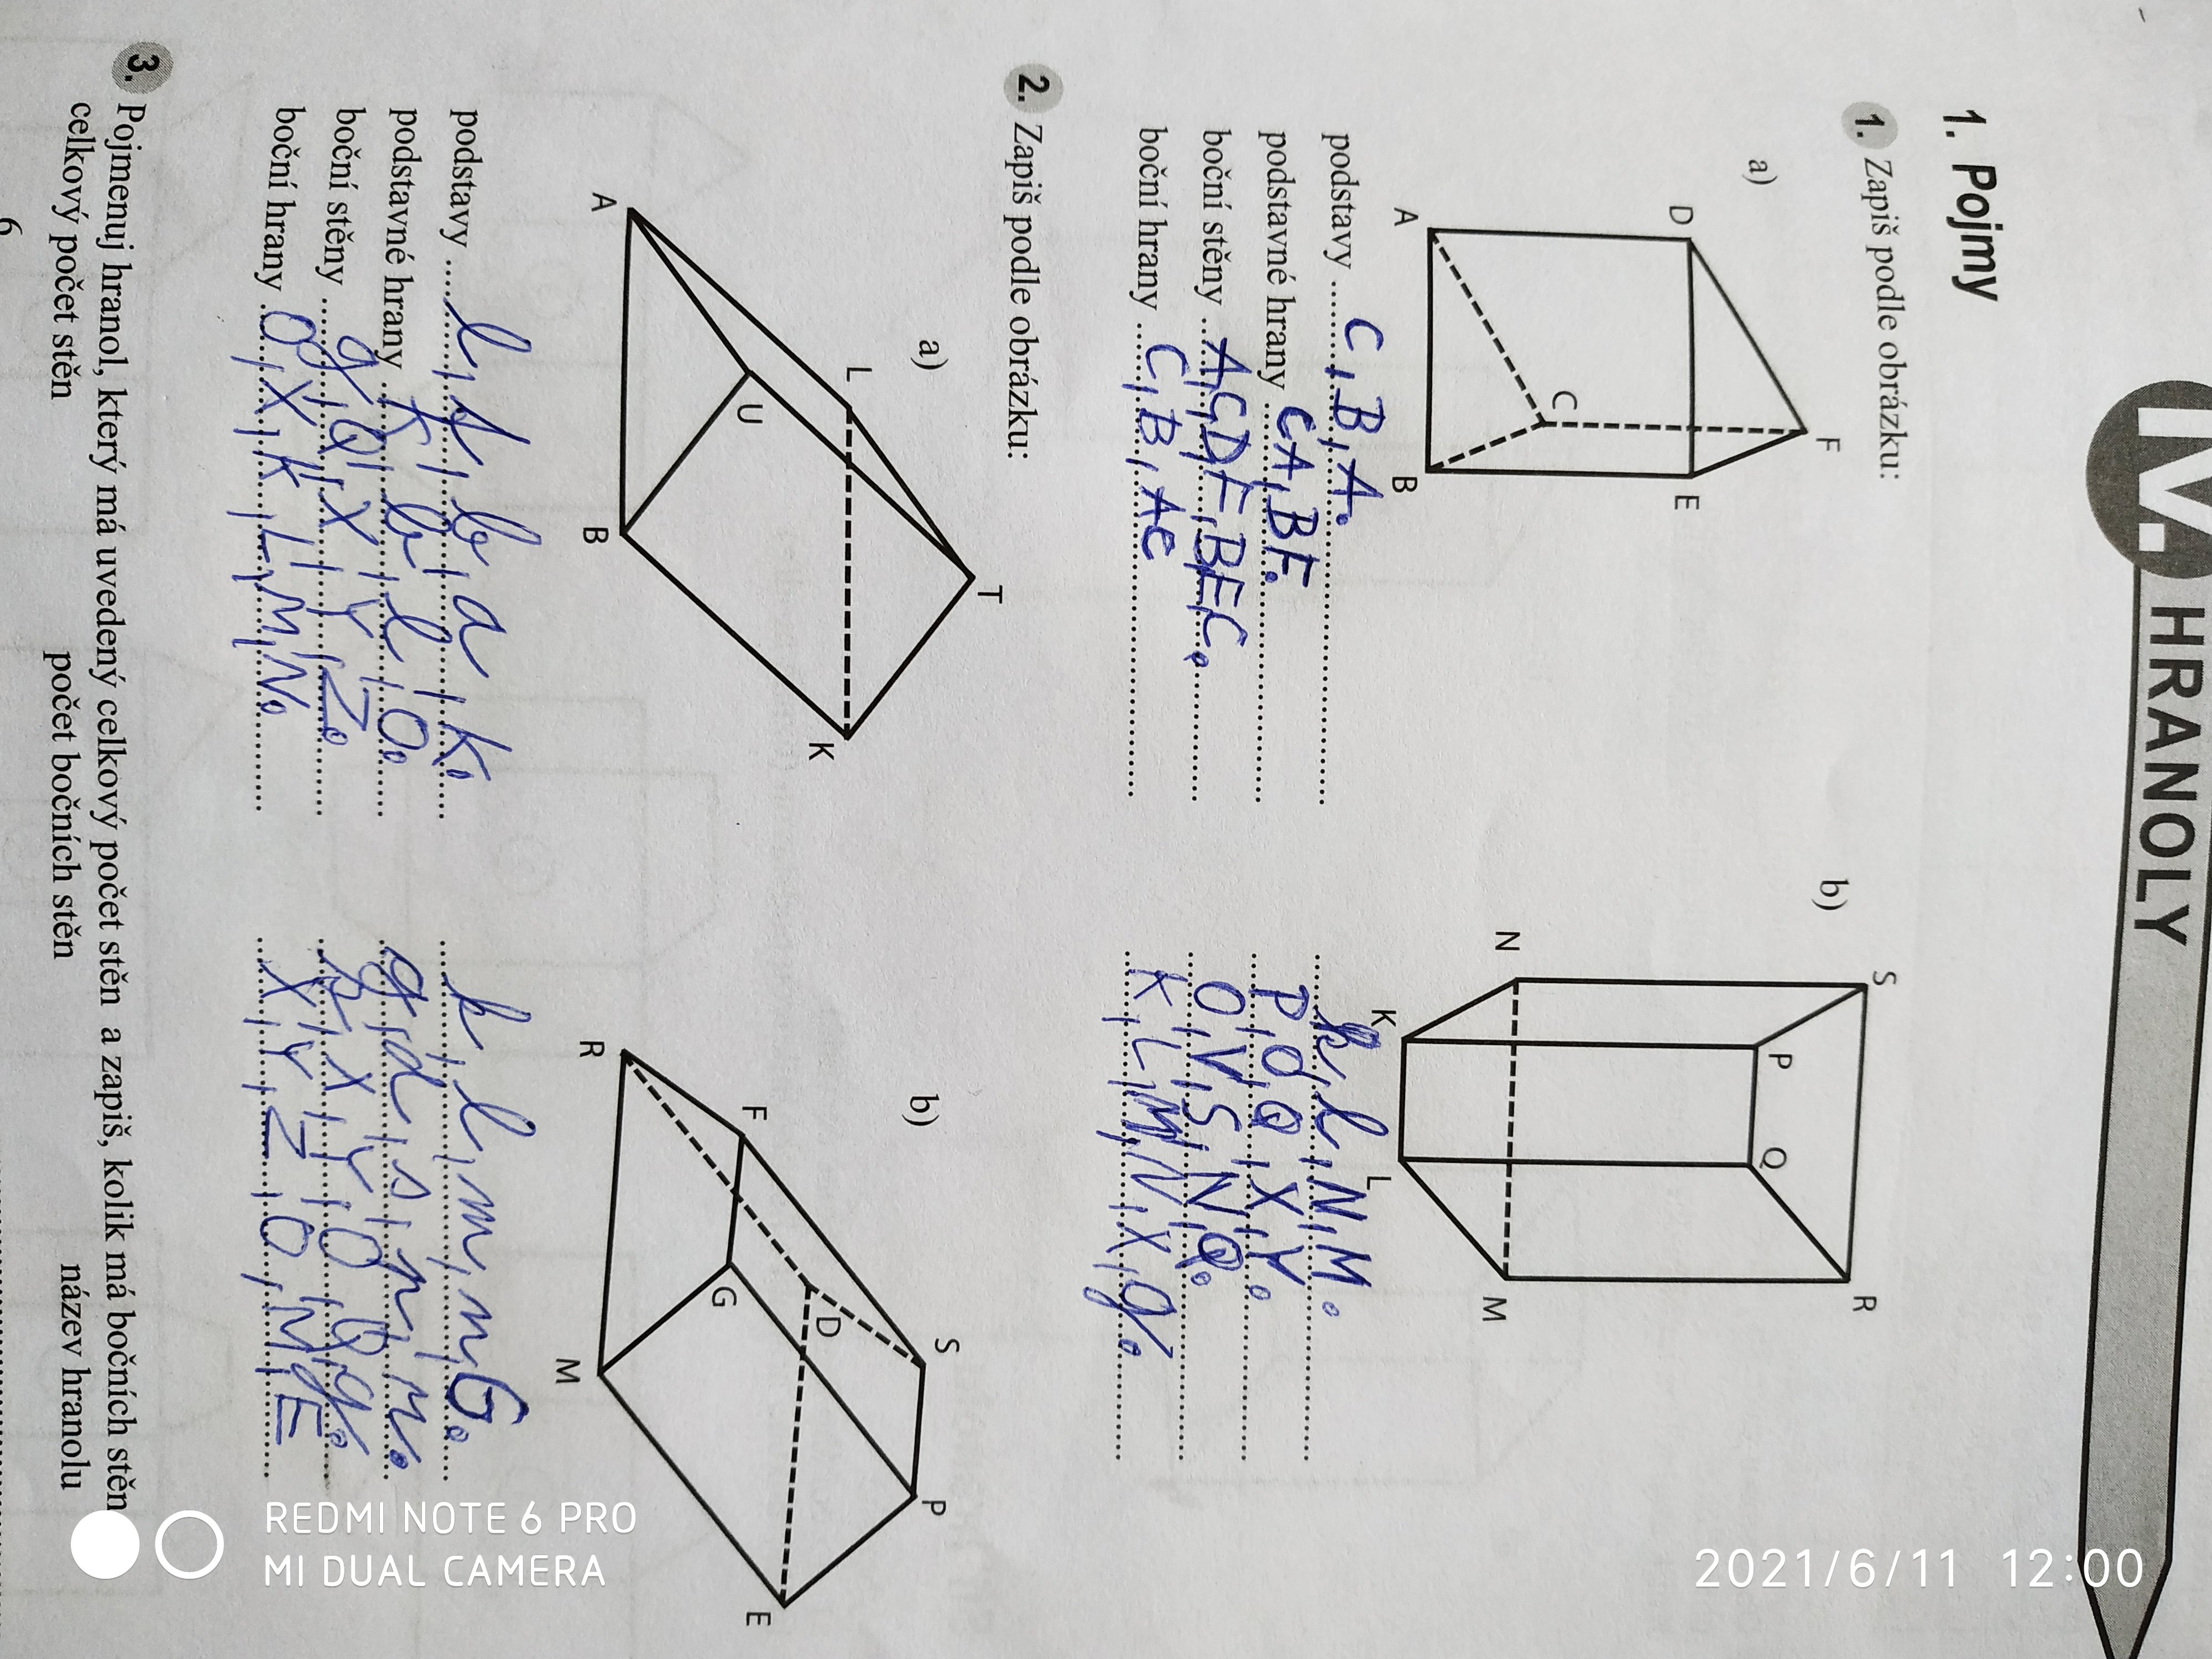 IV. HRANOLY
1. Pojmy
1. Zapiš podle obrázku:
a)
b)
D
E
F
A
B
C
S
R
P
Q
N
M
K
L
podstavy ...... C, B, A.
podstavné hrany CA, BF.
boční stěny
boční hrany ... C, B, AC
P, O, Q, X, Y.
O, V, S, N, Q.
K, L, M, N, X, g.
2. Zapiš podle obrázku:
a)
b)
L
T
U
A
B
K
S
P
F
G
D
R
M
E
podstavy .... l, f, b, a, K.
podstavné hrany .. K, b, l, O.
boční stěny .... g, Q, X, Y, Z.
boční hrany .. O, X, K, L, M, N.
k, l, m, n, G.
X, Y, Z, O, M, E
3. Pojmenuj hranol, který má uvedený celkový počet stěn a zapiš, kolik má bočních stěn
celkový počet stěn počet bočních stěn název hranolu
6
REDMI NOTE 6 PRO
MI DUAL CAMERA
2021/6/11 12:00